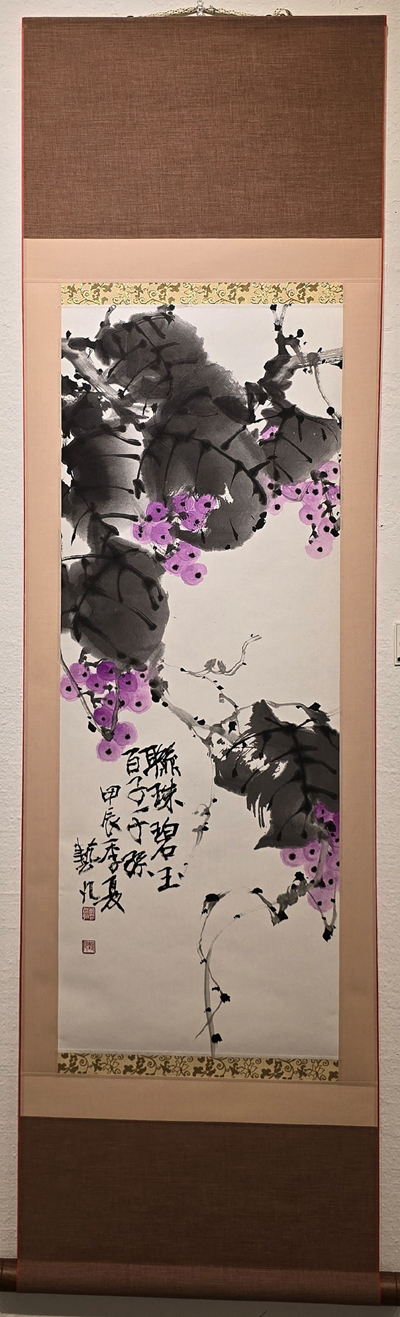 聯珠碧玉
百子千孫
甲辰季夏
藝